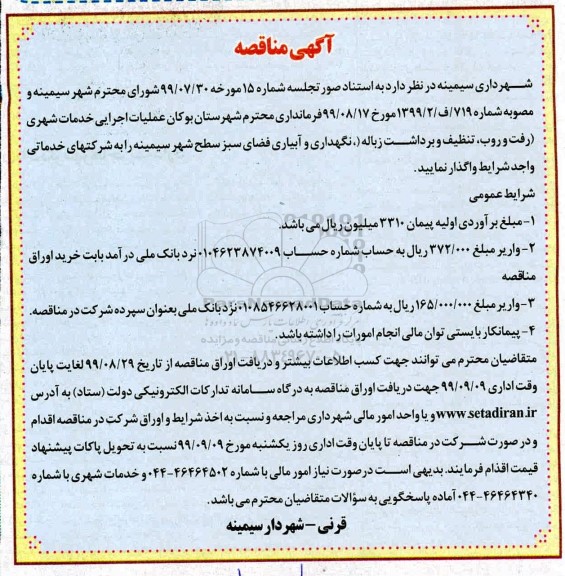 آگهی مناقصه
شهرداری سیمینه در نظر دارد به استناد صورتجلسه شماره ۱۵ مورخه ۹۹/۰۷/۳۰ شورای محترم شهر سیمینه و
مصوبه شماره ۷۱۹/ف/۱۳۹۹/۲ مورخ ۹۹/۰۸/۱۷ فرمانداری محترم شهرستان بوکان عملیات اجرایی خدمات شهری
(رفت و روب، تنظیف و برداشت زباله (، نگهداری و آبیاری فضای سبز سطح شهر سیمینه را به شرکتهای خدماتی
واجد شرایط واگذار نمایید.
شرایط عمومی
۱- مبلغ برآوردی اولیه پیمان ۳۳۱۰ میلیون ریال می باشد.
۲- واریز مبلغ ۳۷۲/۰۰۰ ریال به حساب شماره حساب ۰۱۰۴۶۲۳۸۷۴۰۰۹ نزد بانک ملی در آمد بابت خرید اوراق
مناقصه
۳- واریز مبلغ ۱۶۵/۰۰۰/۰۰۰ ریال به شماره حساب ۰۱۰۸۵۴۶۶۲۸۰۰۱ نزد بانک ملی بعنوان سپرده شرکت در مناقصه.
۴- پیمانکار بایستی توان مالی انجام امورات را داشته باشد.
متقاضیان محترم می توانند جهت کسب اطلاعات بیشتر و دریافت اوراق مناقصه از تاریخ ۹۹/۰۸/۲۹ لغایت پایان
وقت اداری ۹۹/۰۹/۰۹ جهت دریافت اوراق مناقصه به درگاه سامانه تدارکات الکترونیکی دولت (ستاد) به آدرس
www.setadiran.ir و یا واحد امور مالی شهرداری مراجعه و نسبت به اخذ شرایط و اوراق شرکت در مناقصه اقدام
و در صورت شرکت در مناقصه تا پایان وقت اداری روز یکشنبه مورخ ۹۹/۰۹/۰۹ نسبت به تحویل پاکات پیشنهاد
قیمت اقدام فرمایند. بدیهی است در صورت نیاز امور مالی با شماره ۴۶۴۶۴۵۰۲-۰۴۴ و خدمات شهری با شماره
۴۶۴۶۴۳۴۰-۰۴۴ آماده پاسخگویی به سؤالات متقاضیان محترم می باشد.
قرنی - شهردار سیمینه